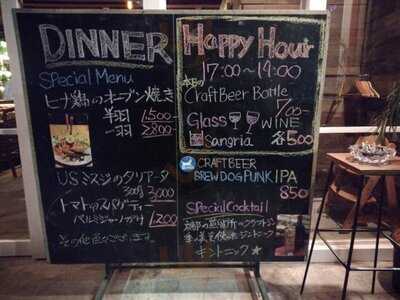 DINNER
Special Menu
ヒナ鶏のオーブン焼き
半羽 1,500
一羽 2,800
USミスジのタリアータ
300g 3,000
トマトのスパゲティー
パルミジャーノがけ 1,200
その他色々ございます
Happy Hour
17:00〜19:00
本日の
Craft Beer Bottle
700
Glass WINE
Sangria 各500
CRAFT BEER
BREWDOG PUNK IPA
850
Special Cocktail
京都の蒸留所のクラフトジン
季の美を使ったジントニック
キントニック★